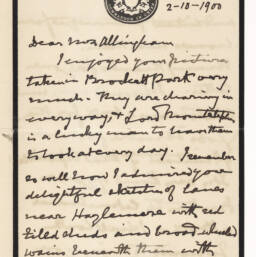 2-10-1900
Dear Mrs Allingham,
I enjoyed your pictures
taken in Brockett Park very
much. They are charming in
every way & Lord Mountstephen
is a lucky man to have them
to look at every day. I remember
so well how I admired your
delightful sketches of lanes
near Haslemere with red
tiled sheds and broad wheeled
wains beneath them with